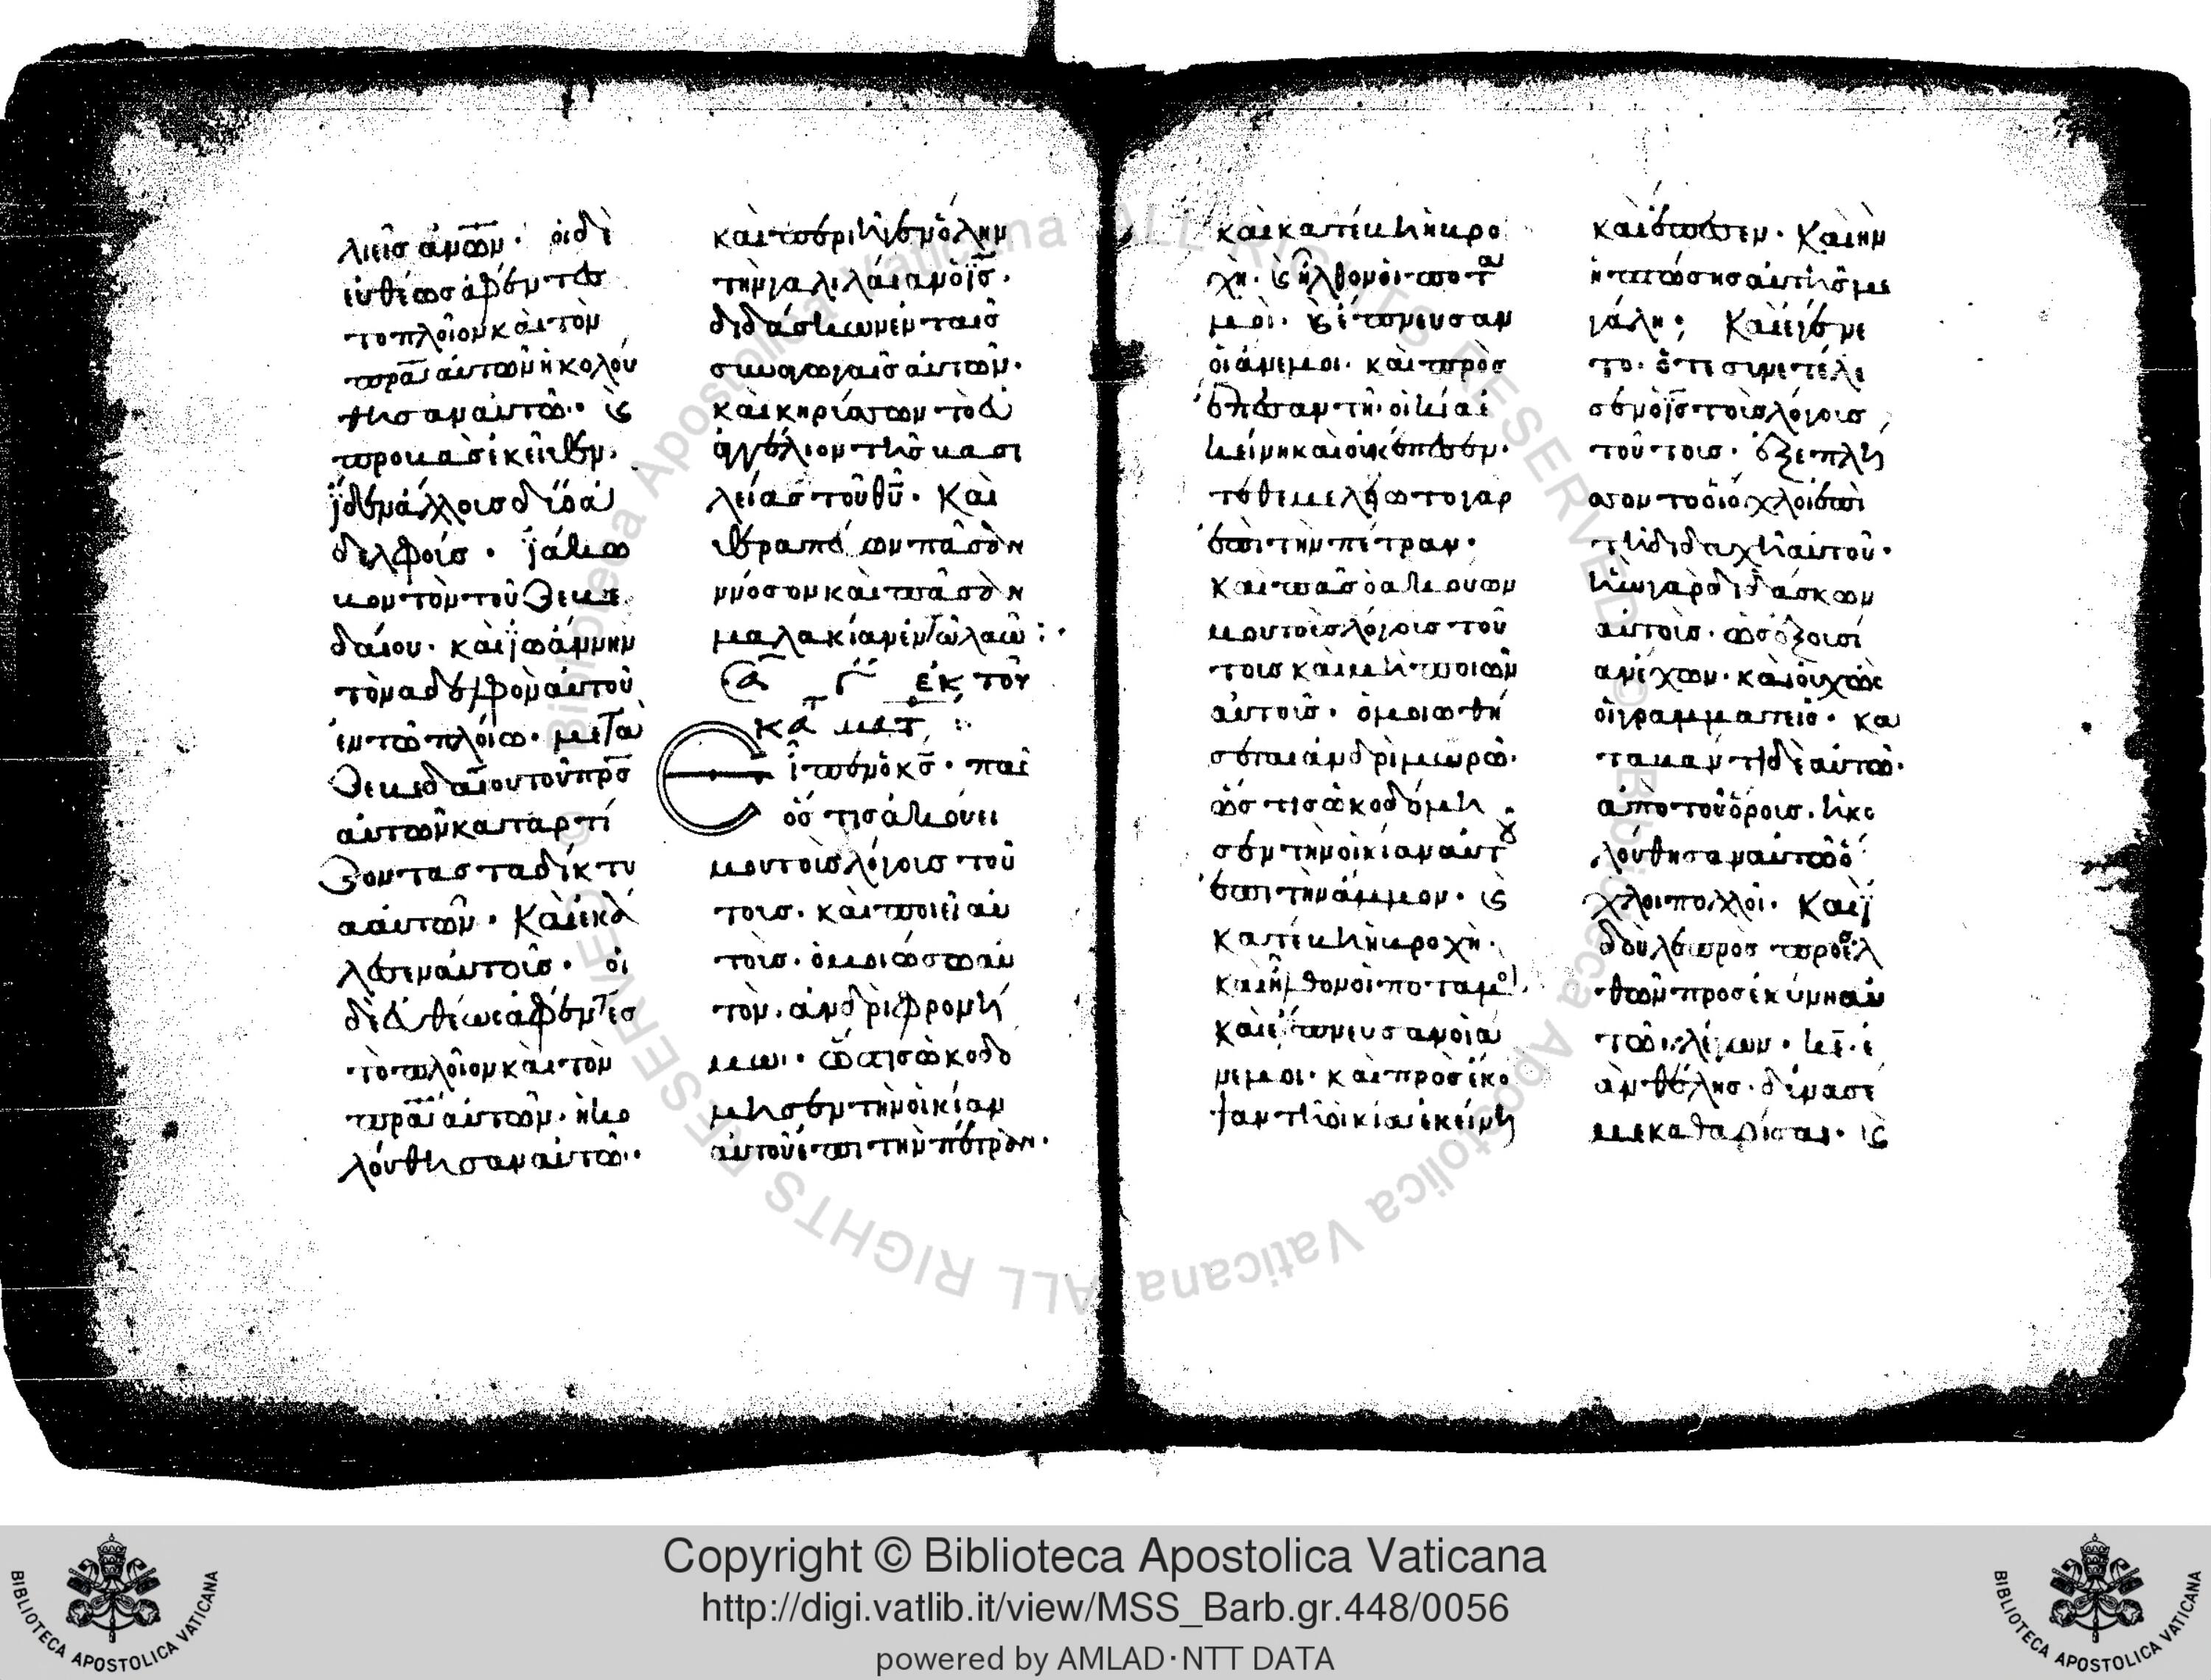 λιεῖς ἀν̅ω̅ν̅· οἱ δὲ
εὐθέωσ ἀφέντεσ
τὸ πλοῖον καὶ τὸν
π̅ρ̅α̅ αὐτῶν ἠκολού
θησαν αὐτῶ· κ̀
προβὰσ ἐκεῖθεν·
ἴδεν ἄλλουσ δύο ἀ
δελφοὺσ· ἰάκω
βον τὸν τοῦ ζεβε
δαίου· καὶ ἰωάννην
τὸν ἀδελφὸν αὐτοῦ
ἐν τῶ πλοίω· μετὰ
ζεβεδαίου τοῦ π̅ρ̅σ̅
αὐτῶν καταρτί
ζοντασ τὰ δίκτυ
α αὐτῶν· Καὶ ἐκά
λεσεν αὐτοὺσ· οἱ
δὲ εὐθέωσ ἀφέντεσ
τὸ πλοῖον καὶ τὸν
π̅ρ̅α̅ αὐτῶν· ἠκο
λούθησαν αὐτῶ·
καὶ περιῆγεν ὅλην
τὴν γαλιλαίαν ὁ ι̅σ̅·
διδάσκων ἐν ταῖσ
συναγωγαῖσ αὐτῶν·
καὶ κηρύσσων τὸ εὐ
αγγέλιον τῆσ βασι
λείασ τοῦ θ̅υ̅· Καὶ
θεραπεύων πᾶσαν
νόσον καὶ πᾶσαν
μαλακίαν ἐν τῶ λαῶ:·
γ̅ ἐκ τοῦ
κατ̅ ματ̅ :
Εἶπεν ὁ κ̅σ̅· πᾶσ
ὅστισ ἀκούει
μου τοὺσ λόγουσ τού
τουσ· καὶ ποιεῖ αὐ
τοὺσ· ὁμοιώσω αὐ
τὸν· ἀνδρὶ φρονί
μω· ὅστισ ὠκοδό
μησεν τὴν οἰκίαν
αὐτοῦ ἐπὶ τὴν πέτραν·
καὶ κατέβη ἡ βρο
χὴ· κ̀ ἦλθον οἱ ποτα
μοὶ· κ̀ ἔπνευσαν
οἱ ἄνεμοι· καὶ προσ
έπεσαν τῆ οἰκία ἐ
κείνη καὶ οὐκ ἔπεσεν·
τεθεμελίωτο γὰρ
ἐπὶ τὴν πέτραν·
Καὶ πᾶσ ὁ ἀκούων
μου τοὺσ λόγουσ τού
τουσ καὶ μὴ ποιῶν
αὐτοὺσ· ὁμοιωθή
σεται ἀνδρὶ μωρῶ·
ὅστισ ὠκοδόμη
σεν τὴν οἰκίαν αὐτοῦ
ἐπὶ τὴν ἄμμον· κ̀
κατέβη ἡ βροχὴ·
καὶ ἦλθον οἱ ποταμοὶ·
καὶ ἔπνευσαν οἱ ἄ
νεμοι· καὶ προσέκο
ψαν τῆ οἰκία ἐκείνη
καὶ ἔπεσεν· Καὶ ἦν
ἡ πτῶσησ αὐτῆσ με
γάλη; Καὶ ἐγένε
το· ὅτε συνετέλε
σεν ὁ ι̅σ̅ τοὺσ λόγουσ
τούτουσ· ἐξεπλή
σσοντο οἱ ὄχλοι ἐπὶ
τῆ διδαχῆ αὐτοῦ·
ἦν γὰρ διδάσκων
αὐτοὺσ· ὡσ ἐξουσί
αν ἔχων· καὶ οὐχ ὡσ
οἱ γραμματεῖσ· Κα
ταβάντι δὲ αὐτῶ·
ἀπὸ τοῦ ὄρουσ· ἠκο
λούθησαν αὐτῶ ὄ
χλοι πολλοὶ· Καὶ ἰ
δοὺ λεπρὸσ προσελ
θὼν προσεκύνησεν
τῶ ι̅υ̅ λέγων· κ̅ε̅· ἐ
ὰν θέλησ· δύνασέ
με καθαρίσαι· κ̀